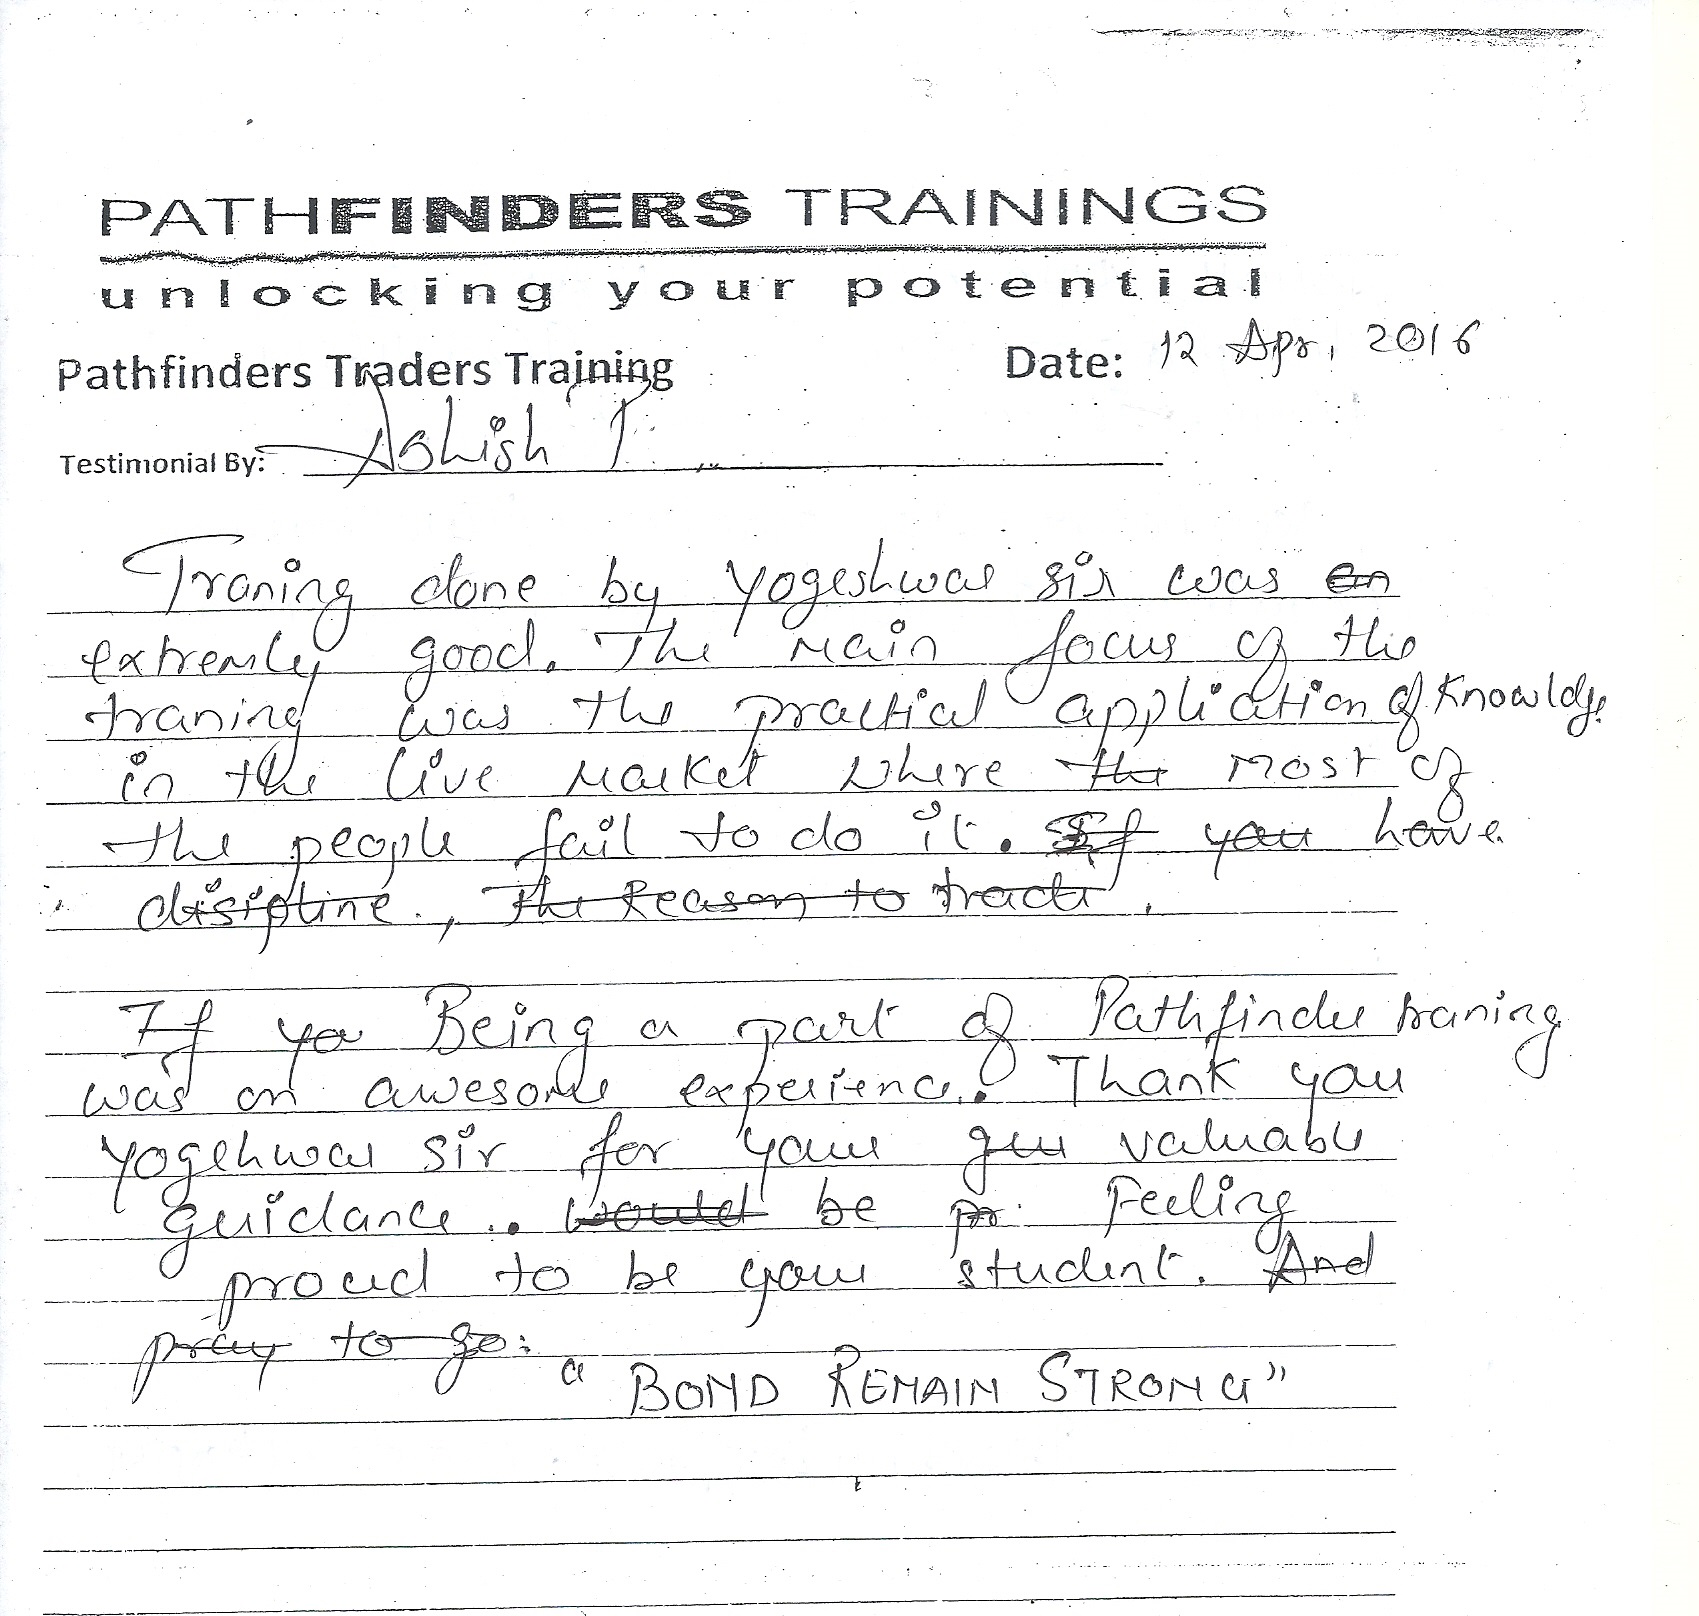 PATHFINDERS TRAININGS
unlocking your potential
Pathfinders Traders Training
Date: 12 Apr, 2016
Testimonial By: Ashish P.
Traning done by Yogeshwar sir was an
extremly good. The main focus of the
traning was the practical application of knowldge
in the live market where the most of
the people fail to do it. If you have
disipline, the Reason to trade.
If yo Being a part of Pathfinder traning
was an awesome experience. Thank you
Yogehwar sir for your valuable
guidance.. would be pr Feeling
proud to be your student. And
pray to go.
" BOND REMAIN STRONG"